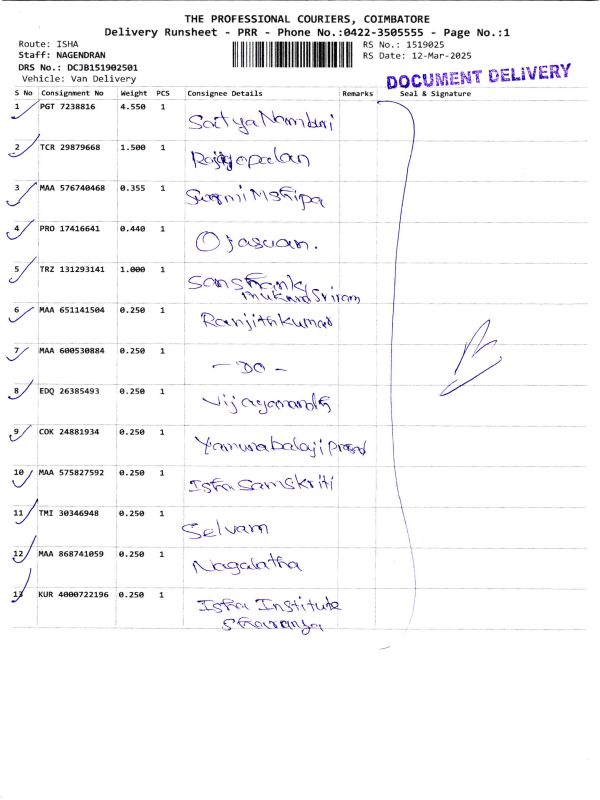 THE PROFESSIONAL COURIERS, COIMBATORE
Delivery Runsheet - PRR - Phone No.:0422-3505555 - Page No.:1
Route: ISHA RS No.: 1519025
Staff: NAGENDRAN RS Date: 12-Mar-2025
DRS No.: DCJB151902501
Vehicle: Van Delivery
DOCUMENT DELIVERY
S No Consignment No Weight PCS Consignee Details Remarks Seal & Signature
1 PGT 7238816 4.550 1 Satya Namburi
2 TCR 29879668 1.500 1 Rajagopalan
3 MAA 576740468 0.355 1
4 PRO 17416641 0.440 1 Ojasuan.
5 TRZ 131293141 1.000 1 Sanshank
Mukund Sriram
6 MAA 651141504 0.250 1 Ranjithkumar
7 MAA 600530884 0.250 1 - DO -
8 EDQ 26385493 0.250 1
9 COK 24881934 0.250 1 Yamunabalaji Prasad
10 MAA 575827592 0.250 1 Isha Samskriti
11 TMI 30346948 0.250 1 Selvam
12 MAA 868741059 0.250 1 Nagalatha
13 KUR 4000722196 0.250 1 Isha Institute